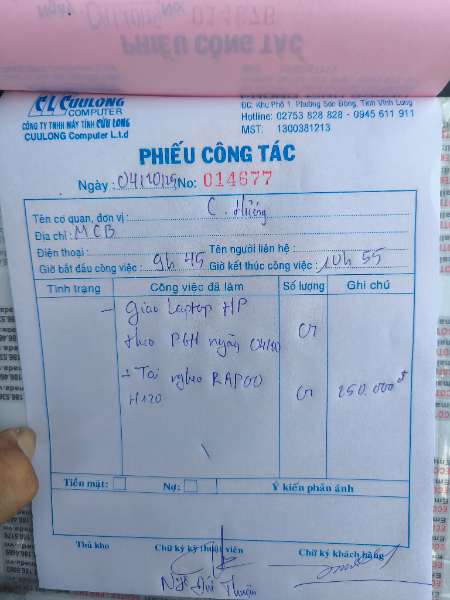 PHIẾU CÔNG TÁC
CL CUULONG
COMPUTER
CÔNG TY TNHH MÁY TÍNH CỬU LONG
CUULONG Computer L.t.d
ĐC: Khu Phố 1, Phường Sơn Đông, Tỉnh Vĩnh Long
Hotline: 02753 828 828 - 0945 611 911
MST: 1300381213
PHIẾU CÔNG TÁC
Ngày: 04/10/25 No: 014677
Tên cơ quan, đơn vị: C. Hương
Địa chỉ: MCB
Điện thoại: Tên người liên hệ:
Giờ bắt đầu công việc: 9h 45 Giờ kết thúc công việc: 10h 55
Tình trạng Công việc đã làm Số lượng Ghi chú
- Giao Laptop HP
theo PGH ngày 04/10 01
+ Tai nghe RAPOO
H120 01 250.000đ
Tiền mặt: Nợ: Ý kiến phản ánh
Thủ kho Chữ ký kỹ thuật viên Chữ ký khách hàng
Thuận